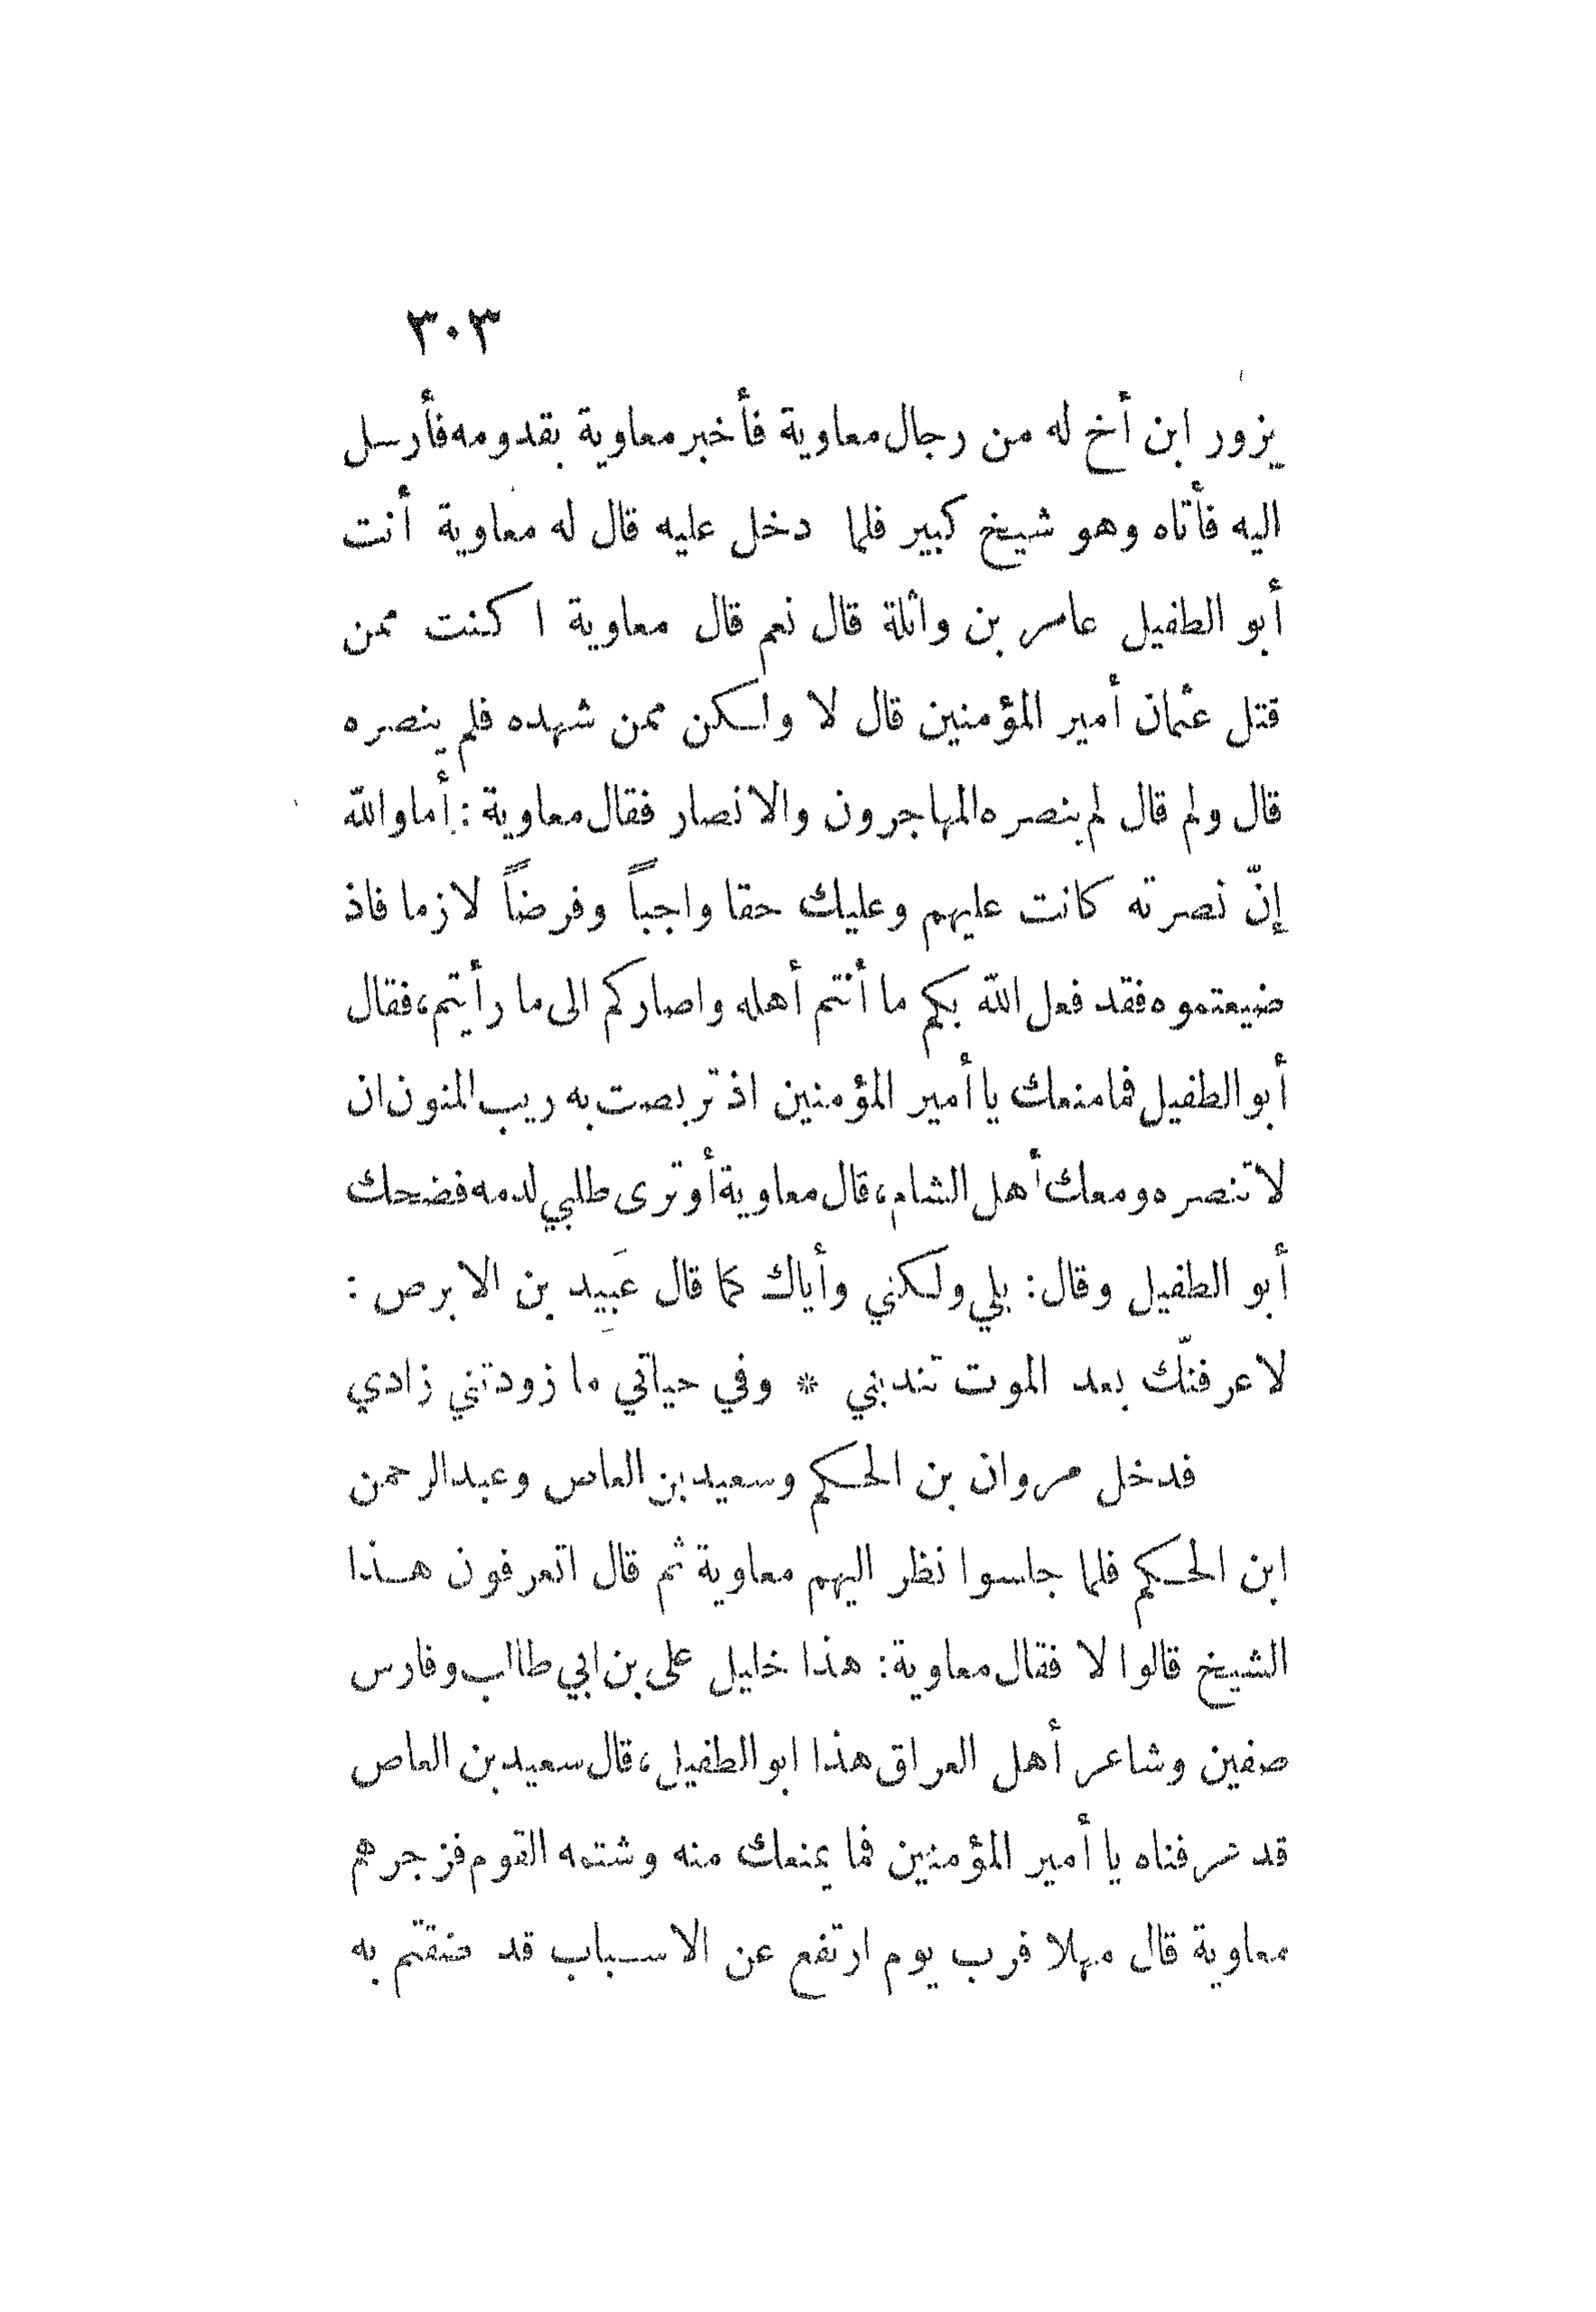 ٣٠٣
يزور ابن أخ له من رجال معاوية فأخبر معاوية بقدومه فأرسل
اليه فأتاه وهو شيخ كبير فلما دخل عليه قال له معاوية أنت
أبو الطفيل عامر بن واثلة قال نعم قال معاوية اكنت ممن
قتل عثمان أمير المؤمنين قال لا ولكن ممن شهده فلم ينصره
قال ولم قال لم ينصره المهاجرون والانصار فقال معاوية : أما والله
إنّ نصرته كانت عليهم وعليك حقا واجباً وفرضاً لازما فاذ
ضيعتموه فقد فعل الله بكم ما أنتم أهله واصاركم الى ما رأيتم، فقال
أبو الطفيل فما منعك يا أمير المؤمنين اذ تربصت به ريب المنون ان
لا تنصره ومعك أهل الشام، قال معاوية أو ترى طلبي لدمه فضحك
أبو الطفيل وقال : بلي ولكني وأياك كما قال عَبِيد بن الابرص :
لاعرفنّك بعد الموت تندبني * وفي حياتي ما زودتني زادي
فدخل مروان بن الحكم وسعيد بن العاص وعبد الرحمن
ابن الحكم فلما جلسوا نظر اليهم معاوية ثم قال اتعرفون هذا
الشيخ قالوا لا فقال معاوية : هذا خليل على بن ابي طالب وفارس
صفين وشاعر أهل العراق هذا ابو الطفيل، قال سعيد بن العاص
قد عرفناه يا أمير المؤمنين فما يمنعك منه وشتمه القوم فزجرهم
معاوية قال مهلا فرب يوم ارتفع عن الاسباب قد ضقتم به